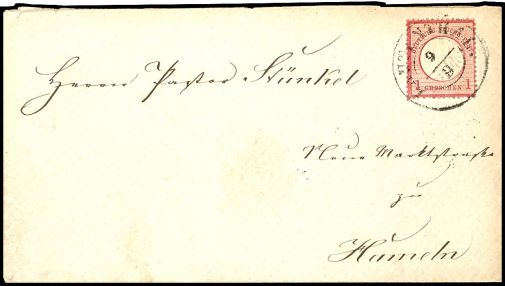 Herrn Pastor Stünkel
Neue Marktstraße
zu
Hameln
1 GROSCHEN 1